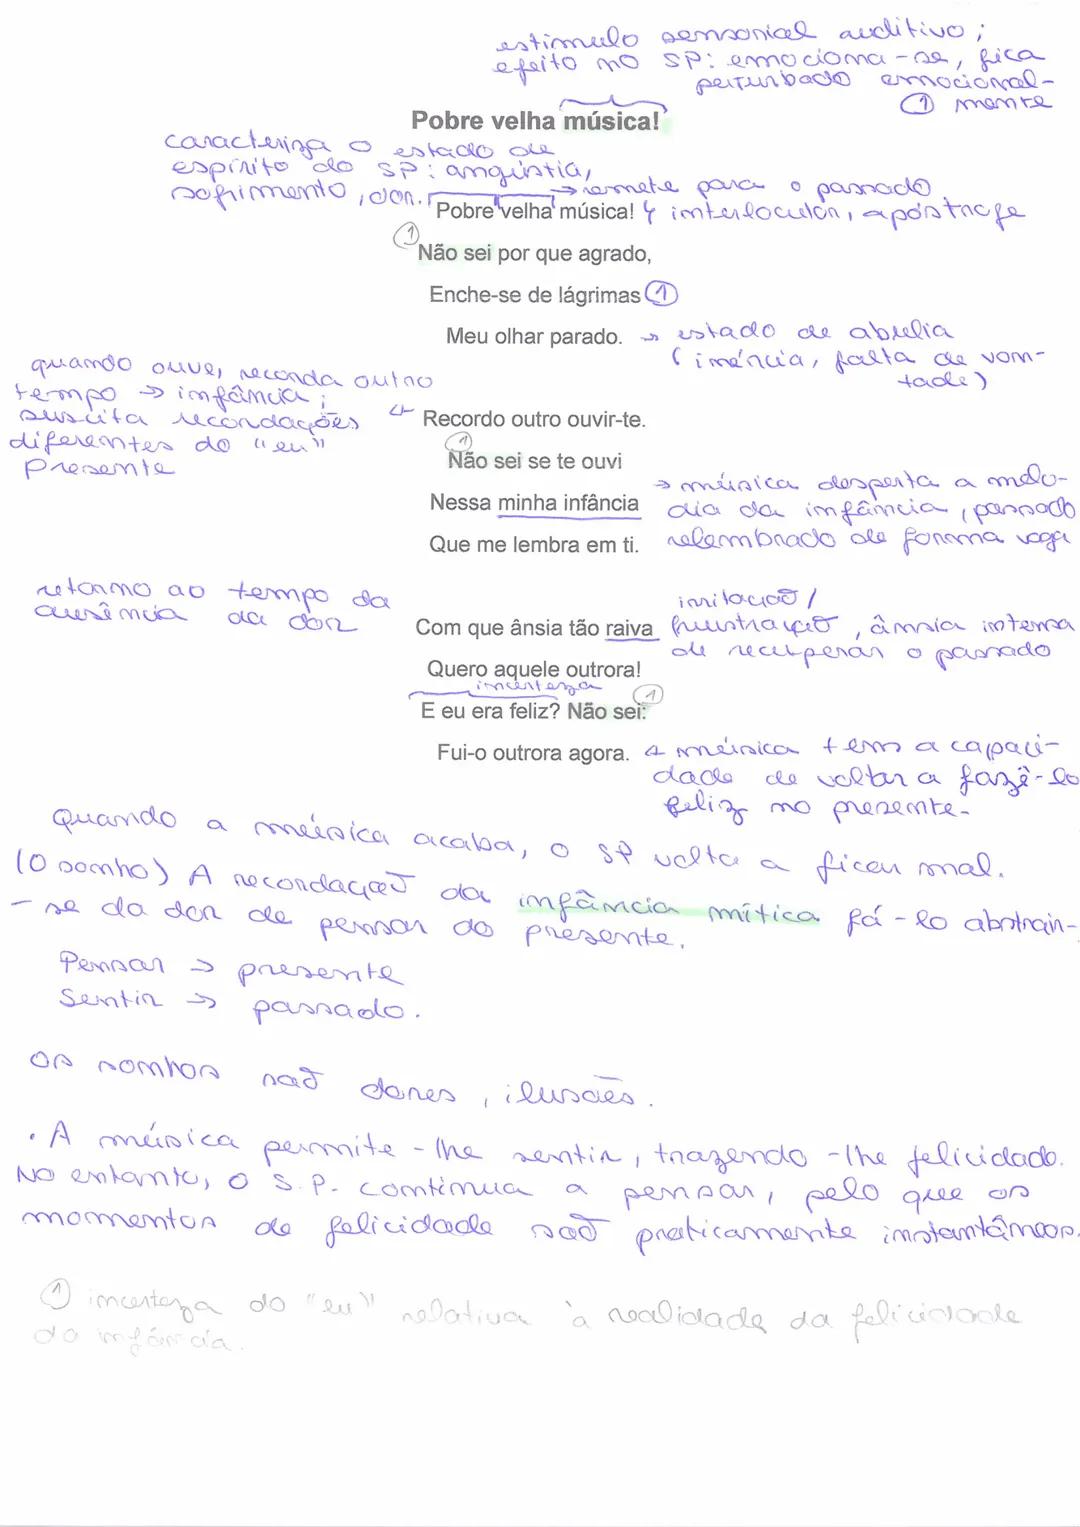 estímulo sensorial auditivo;
efeito no SP: emociona-se, fica
perturbado emocional-
① mente
Pobre velha música!
caracteriza o estado de
espírito do SP: angústia,
sofrimento, dor.
→ remete para o passado
Pobre velha música! ↳ interlocutor, apóstrofe
①
Não sei por que agrado,
Enche-se de lágrimas ①
Meu olhar parado. → estado de abulia
(inércia, falta de von-
tade)
quando ouve, recorda outro
tempo → infância;
suscita recordações
diferentes do "eu"
presente
Recordo outro ouvir-te.
①
Não sei se te ouvi
Nessa minha infância
Que me lembra em ti.
→ música desperta a melo-
dia da infância, passado
relembrado de forma vaga
retorno ao tempo da
ausência da dor
irritação/
Com que ânsia tão raiva frustração, ânsia intensa
de recuperar o passado
Quero aquele outrora!
incerteza ①
E eu era feliz? Não sei:
Fui-o outrora agora. ↳ música tem a capaci-
dade de voltar a fazê-lo
feliz no presente.
Quando a música acaba, o SP volta a ficar mal.
(O sonho) A recordação da infância mítica fá-lo abstrair-
-se da dor de pensar do presente.
Pensar → presente
Sentir → passado.
Os sonhos são dores, ilusões.
. A música permite-lhe sentir, trazendo-lhe felicidade.
No entanto, o S.P. continua a pensar, pelo que os
momentos de felicidade são praticamente instantâneos.
① incerteza do "eu" relativa à realidade da felicidade
da infância.